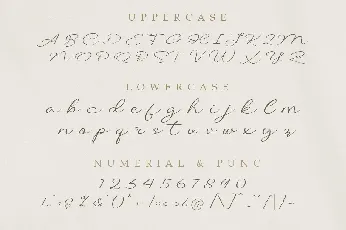 UPPERCASE
A B C D E F G H I J K L M
N O P Q R S T U V W X Y Z
LOWERCASE
a b c d e f g h i j k l m
n o p q r s t u v w x y z
NUMERIAL & PUNC
1 2 3 4 5 6 7 8 9 0